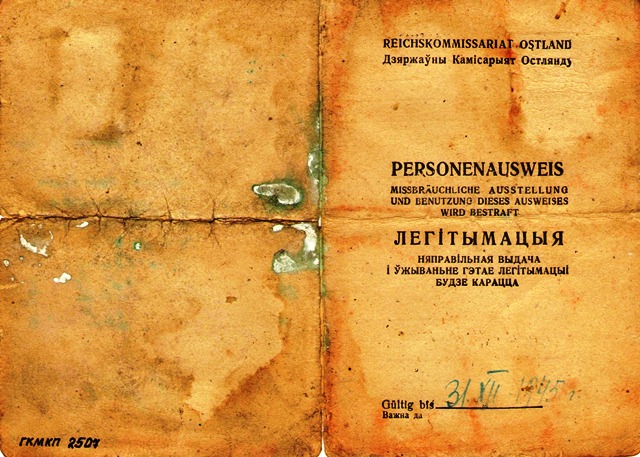 REICHSKOMMISSARIAT OSTLAND
Дзяржаўны Камісарыят Остлянду
PERSONENAUSWEIS
MISSBRÄUCHLICHE AUSSTELLUNG
UND BENUTZUNG DIESES AUSWEISES
WIRD BESTRAFT
ЛЕГІТЫМАЦЫЯ
НЯПРАВІЛЬНАЯ ВЫДАЧА
І ЎЖЫВАНЬНЕ ГЭТАЕ ЛЕГІТЫМАЦЫІ
БУДЗЕ КАРАЦЦА
Gültig bis 31. XII 1945 г.
Важна да
ГКМКП 2507